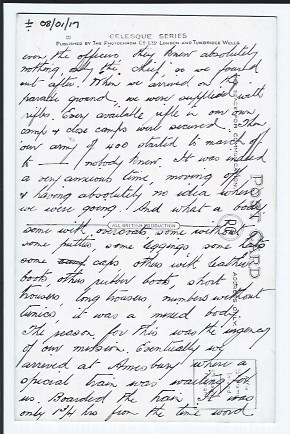 ÷ 08/01/17
CELESQUE SERIES
PUBLISHED BY THE PHOTOCHROM CO. LTD. LONDON AND TUNBRIDGE WELLS
even the officers they knew absolutely
nothing only the Chief, so we found
out after. When we arrived on the
parade ground, we were supplied with
rifles. Every available rifle in our own
camp & close camps were secured. Then
our army of 400 started to march off
to — nobody knew. It was indeed
a very anxious time, moving off
& having absolutely no idea where
we were going. And what a body
some with overcoats some without
ALL BRITISH PRODUCTION
some putties, some leggings, some hats
some caps, others with leather
boots, others rubber boots, short
trousers, long trousers, numbers without
tunics, it was a mixed body.
The reason for this was the urgency
of our mission. Eventually we
arrived at Amesbury where a
special train was waiting for
us. Boarded the train. It was
only 1¾ hrs from the time word
POST CARD